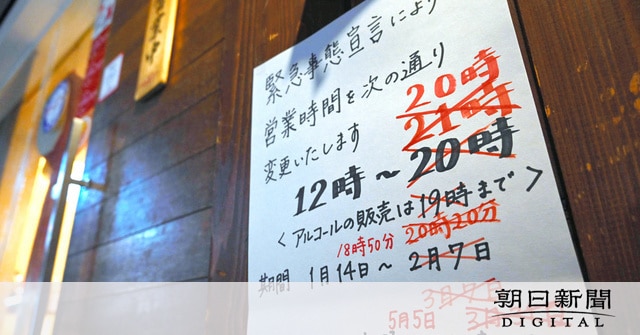 業中
緊急事態宣言により
営業時間を次の通り
20時
変更いたします
21時
12時～20時
＜アルコールの販売は19時まで＞
18時50分 20時20分
期間 1月14日～2月7日
3月7日
5月5日 3月
朝日新聞
DIGITAL